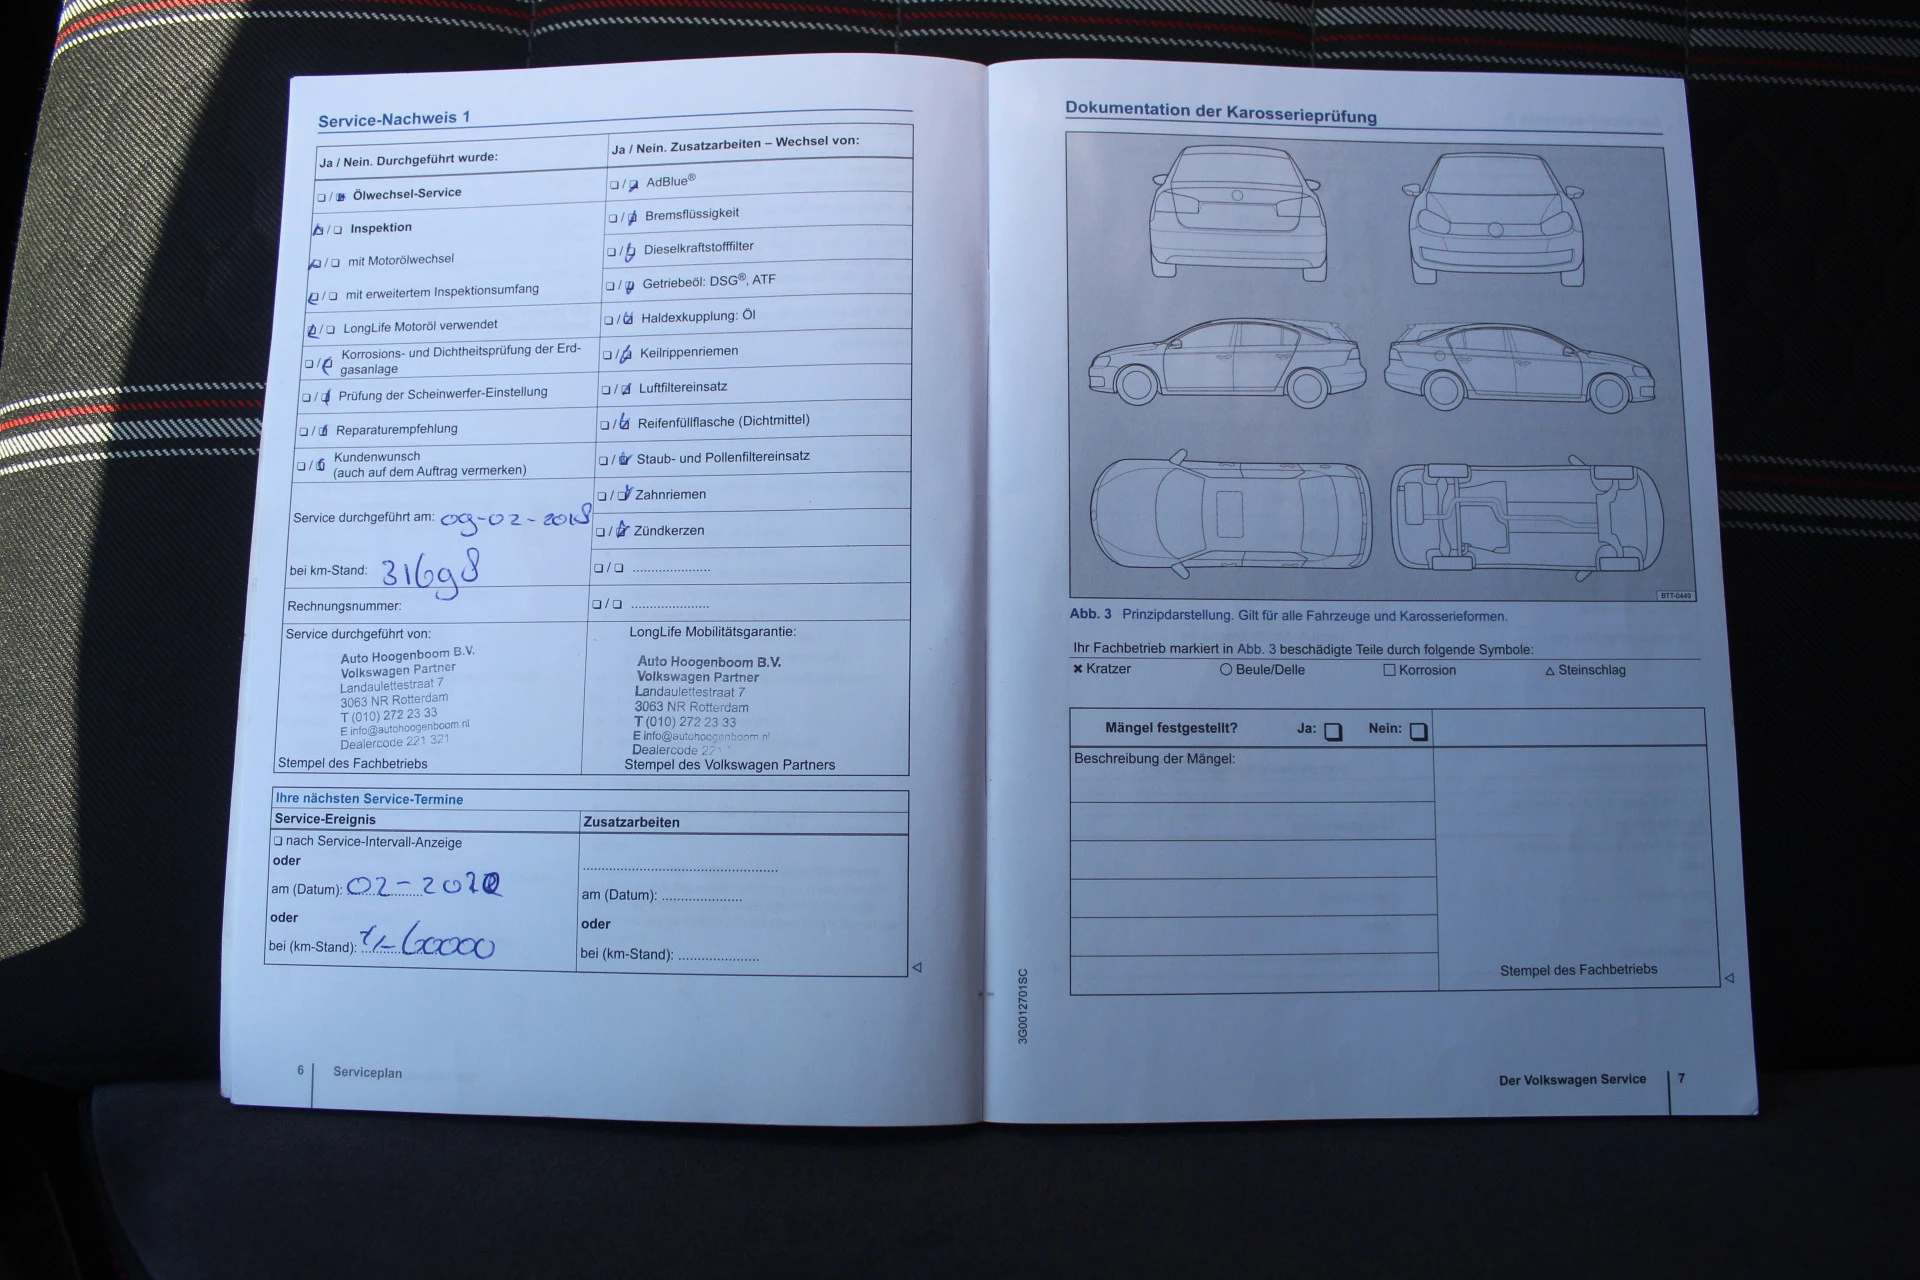 Service-Nachweis 1
Ja / Nein. Durchgeführt wurde:
❑ / ❑ Ölwechsel-Service
❑ / ❑ Inspektion
❑ / ❑ mit Motorölwechsel
❑ / ❑ mit erweitertem Inspektionsumfang
❑ / ❑ LongLife Motoröl verwendet
❑ / ❑ Korrosions- und Dichtheitsprüfung der Erd-
gasanlage
❑ / ❑ Prüfung der Scheinwerfer-Einstellung
❑ / ❑ Reparaturempfehlung
❑ / ❑ Kundenwunsch
(auch auf dem Auftrag vermerken)
Service durchgeführt am: 09-02-2018
bei km-Stand: 31698
Rechnungsnummer:
Ja / Nein. Zusatzarbeiten – Wechsel von:
❑ / ❑ AdBlue®
❑ / ❑ Bremsflüssigkeit
❑ / ❑ Dieselkraftstofffilter
❑ / ❑ Getriebeöl: DSG®, ATF
❑ / ❑ Haldexkupplung: Öl
❑ / ❑ Keilrippenriemen
❑ / ❑ Luftfiltereinsatz
❑ / ❑ Reifenfüllflasche (Dichtmittel)
❑ / ❑ Staub- und Pollenfiltereinsatz
❑ / ❑ Zahnriemen
❑ / ❑ Zündkerzen
❑ / ❑ .....................
❑ / ❑ .....................
Service durchgeführt von:
Auto Hoogenboom B.V.
Volkswagen Partner
Landaulettestraat 7
3063 NR Rotterdam
T (010) 272 23 33
E info@autohoogenboom.nl
Dealercode 221 321
Stempel des Fachbetriebs
LongLife Mobilitätsgarantie:
Auto Hoogenboom B.V.
Volkswagen Partner
Landaulettestraat 7
3063 NR Rotterdam
T (010) 272 23 33
E info@autohoogenboom.nl
Dealercode
Stempel des Volkswagen Partners
Ihre nächsten Service-Termine
Service-Ereignis
❑ nach Service-Intervall-Anzeige
oder
am (Datum): 02-2020
oder
bei (km-Stand): +/- 60000
Zusatzarbeiten
.....................
am (Datum): .....................
oder
bei (km-Stand): .....................
6 Serviceplan
Dokumentation der Karosserieprüfung
BTT-0449
Abb. 3 Prinzipdarstellung. Gilt für alle Fahrzeuge und Karosserieformen.
Ihr Fachbetrieb markiert in Abb. 3 beschädigte Teile durch folgende Symbole:
✖ Kratzer ○ Beule/Delle □ Korrosion △ Steinschlag
Mängel festgestellt? Ja: ❑ Nein: ❑
Beschreibung der Mängel:
Stempel des Fachbetriebs
3G0012701SC
Der Volkswagen Service 7